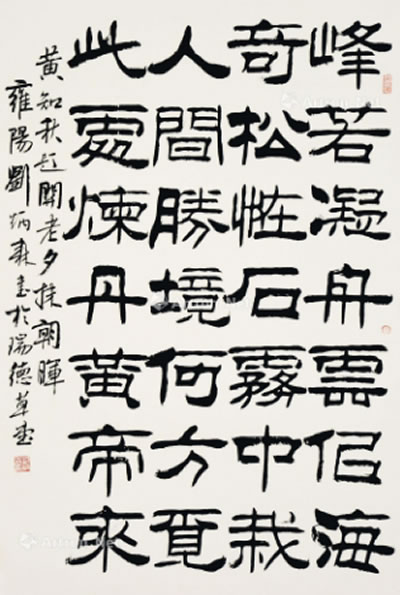 峰若凝舟雲佀海
奇松恠石霧中栽
人間勝境何方覓
此處煉丹黄帝來
黄知秋 老夕 朝暉
雍陽劉炳森書於瑞德草堂